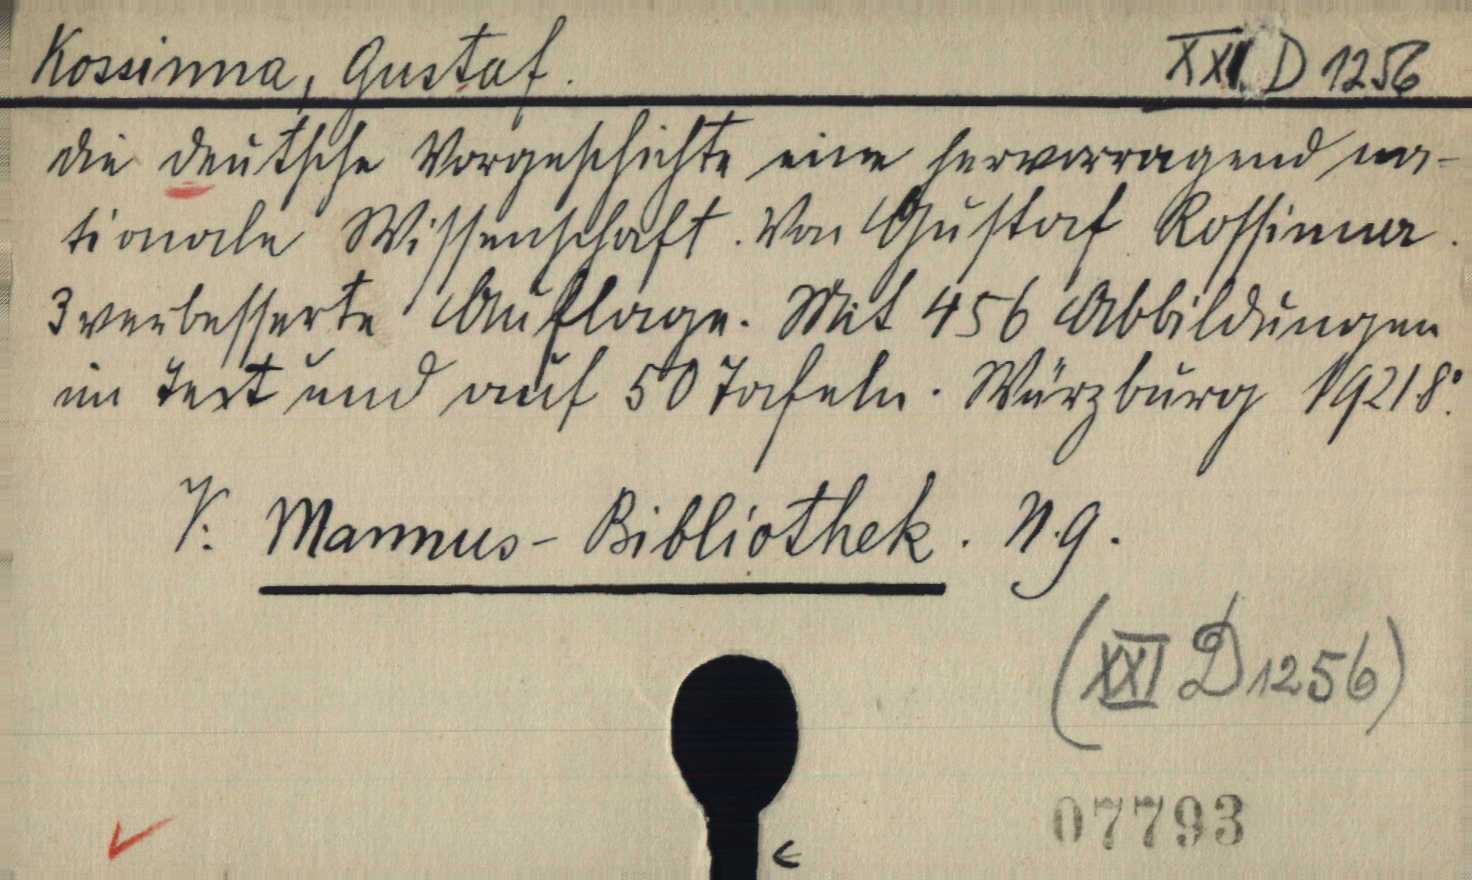 Kossinna, Gustaf. XXI. D 1256
die deutsche Vorgeschichte eine hervorragend na-
tionale Wissenschaft. Von Gustaf Kossinna.
3 verbesserte Auflage. Mit 456 Abbildungen
im Text und auf 50 Tafeln. Würzburg 1921 8°.
V. Mannus-Bibliothek. N.9.
(XXI D 1256)
07793